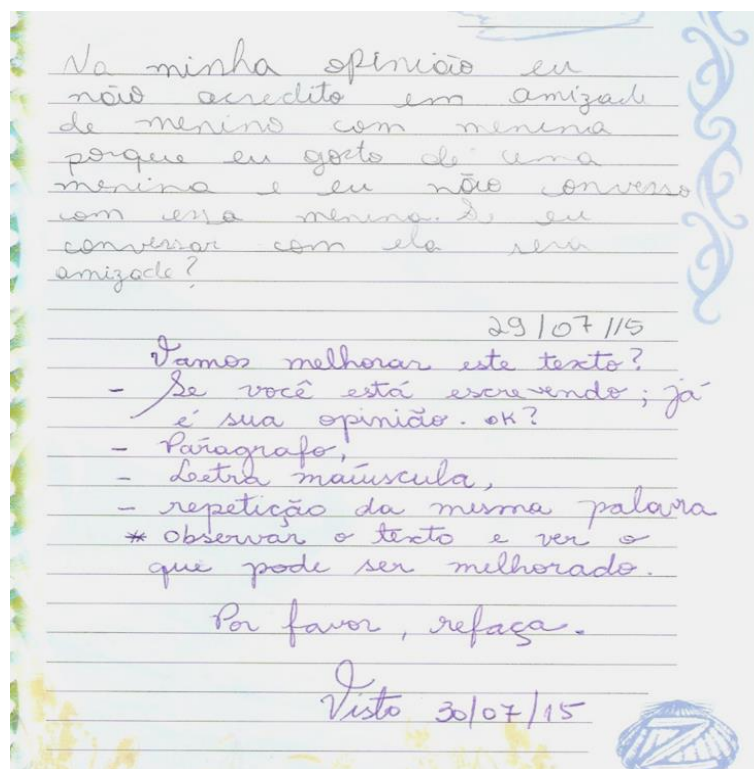 Na minha opinião eu
não acredito em amizade
de menino com menina
porque eu gosto de uma
menina e eu não converso
com essa menina. Se eu
conversar com ela sera
amizade?
29/07/15
Vamos melhorar este texto?
- Se você está escrevendo; já
é sua opinião. OK?
- Parágrafo,
- Letra maiúscula,
- repetição da mesma palavra
* Observar o texto e ver o
que pode ser melhorado.
Por favor, refaça.
Visto 30/07/15